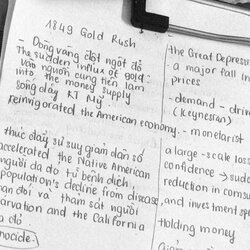 1849 Gold Rush
- Dòng vàng đột ngột đổ
The sudden influx of gold
vào nguồn cung tiền làm
into the money supply
sống dậy KT Mỹ.
reinvigorated the American economy.
thúc đẩy sự suy giảm dân số
accelerated the Native American
người da đỏ từ bệnh dịch,
population's decline from disease,
nạn đói và thảm sát người
starvation and the California
da đỏ
genocide.
the Great Depress
- a major fall in
prices
- demand - driv
(Keynesian)
- monetarist
a large-scale loss
confidence → sudd
reduction in consum
and investment spe
Holding money